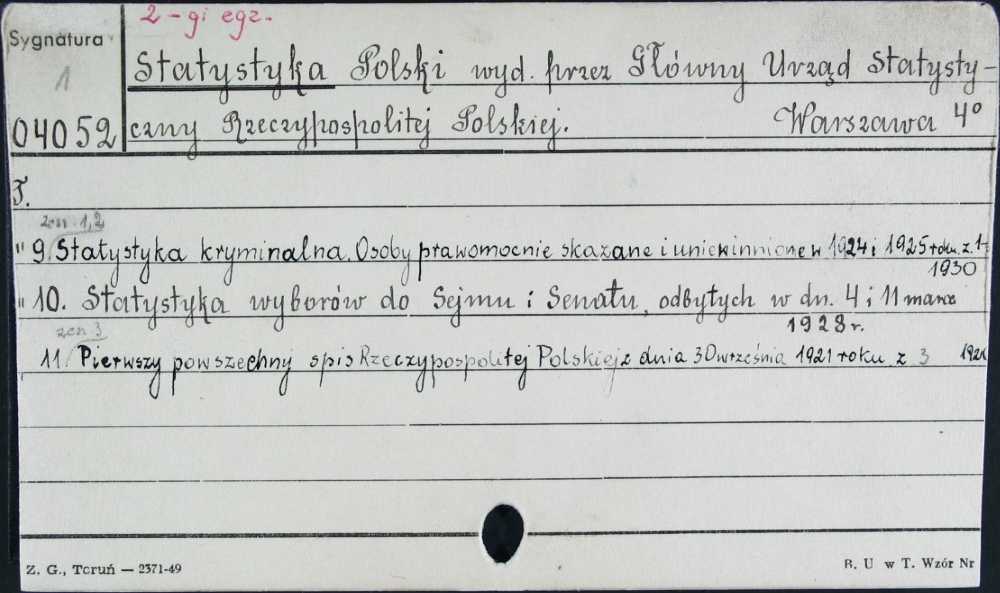 2-gi egz.
Sygnatura
1
04052
Statystyka Polski wyd. przez Główny Urząd Statysty-
czny Rzeczypospolitej Polskiej. Warszawa 4°
T.
zesz 1,2
" 9. Statystyka kryminalna. Osoby prawomocnie skazane i uniewinnione w 1924 i 1925 roku. z. 1-
1930
" 10. Statystyka wyborów do Sejmu i Senatu, odbytych w dn. 4 i 11 marca
1928 r.
zesz 3
11. Pierwszy powszechny spis Rzeczypospolitej Polskiej z dnia 30 września 1921 roku. z 3
Z. G., Toruń — 2371-49
B. U w T. Wzór Nr